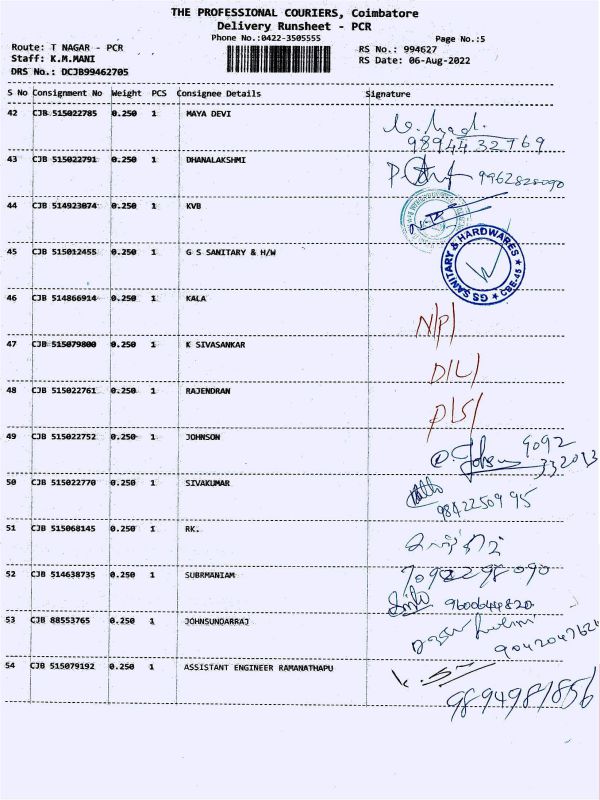 THE PROFESSIONAL COURIERS, Coimbatore
Delivery Runsheet - PCR
Phone No.:0422-3505555
Page No.:5
Route: T NAGAR - PCR
RS No.: 994627
Staff: K.M.MANI
RS Date: 06-Aug-2022
DRS No.: DCJB99462705
S No Consignment No Weight PCS Consignee Details Signature
42 CJB 515022785 0.250 1 MAYA DEVI
9894432769
43 CJB 515022791 0.250 1 DHANALAKSHMI
9962828090
44 CJB 514923074 0.250 1 KVB
45 CJB 515012455 0.250 1 G S SANITARY & H/W
GS SANITARY & HARDWARES ★ CBE-45 ★
46 CJB 514866914 0.250 1 KALA
N/P/
47 CJB 515079800 0.250 1 K SIVASANKAR
D/L/
48 CJB 515022761 0.250 1 RAJENDRAN
49 CJB 515022752 0.250 1 JOHNSON
9092
332013
50 CJB 515022770 0.250 1 SIVAKUMAR
9842250995
51 CJB 515068145 0.250 1 RK.
52 CJB 514638735 0.250 1 SUBRMANIAM
7092298090
9600644820
53 CJB 88553765 0.250 1 JOHNSUNDARRAJ
9042047626
54 CJB 515079192 0.250 1 ASSISTANT ENGINEER RAMANATHAPU
9894981856